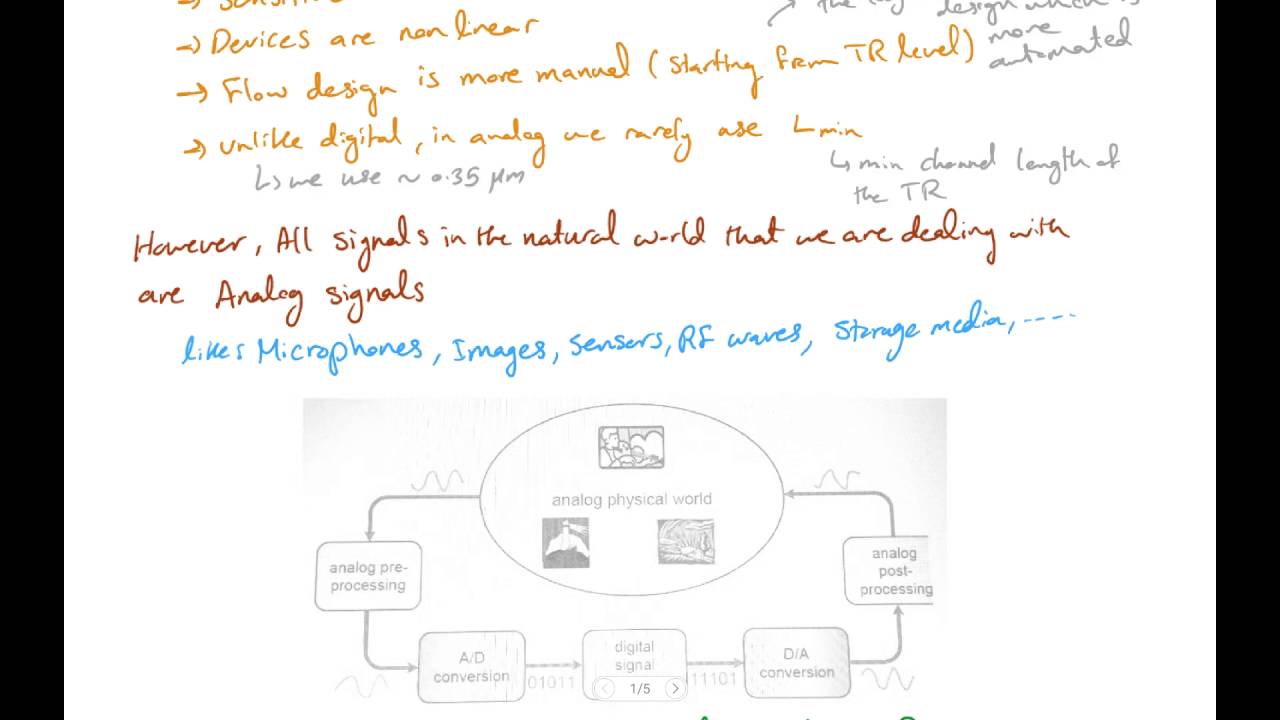 → Sensitive
→ Devices are nonlinear
→ Flow design is more manual (starting from TR level)
↗ the
design which is
more
automated
→ unlike digital, in analog we rarely use Lmin
↳ we use ~ 0.35 µm
↳ min channel length of
the TR
However, All signals in the natural world that we are dealing with
are Analog signals
like: Microphones, Images, Sensors, RF waves, Storage media, ....
analog physical world
analog pre-
processing
analog
post-
processing
A/D
conversion
01011
digital
signal
11101
D/A
conversion
1/5